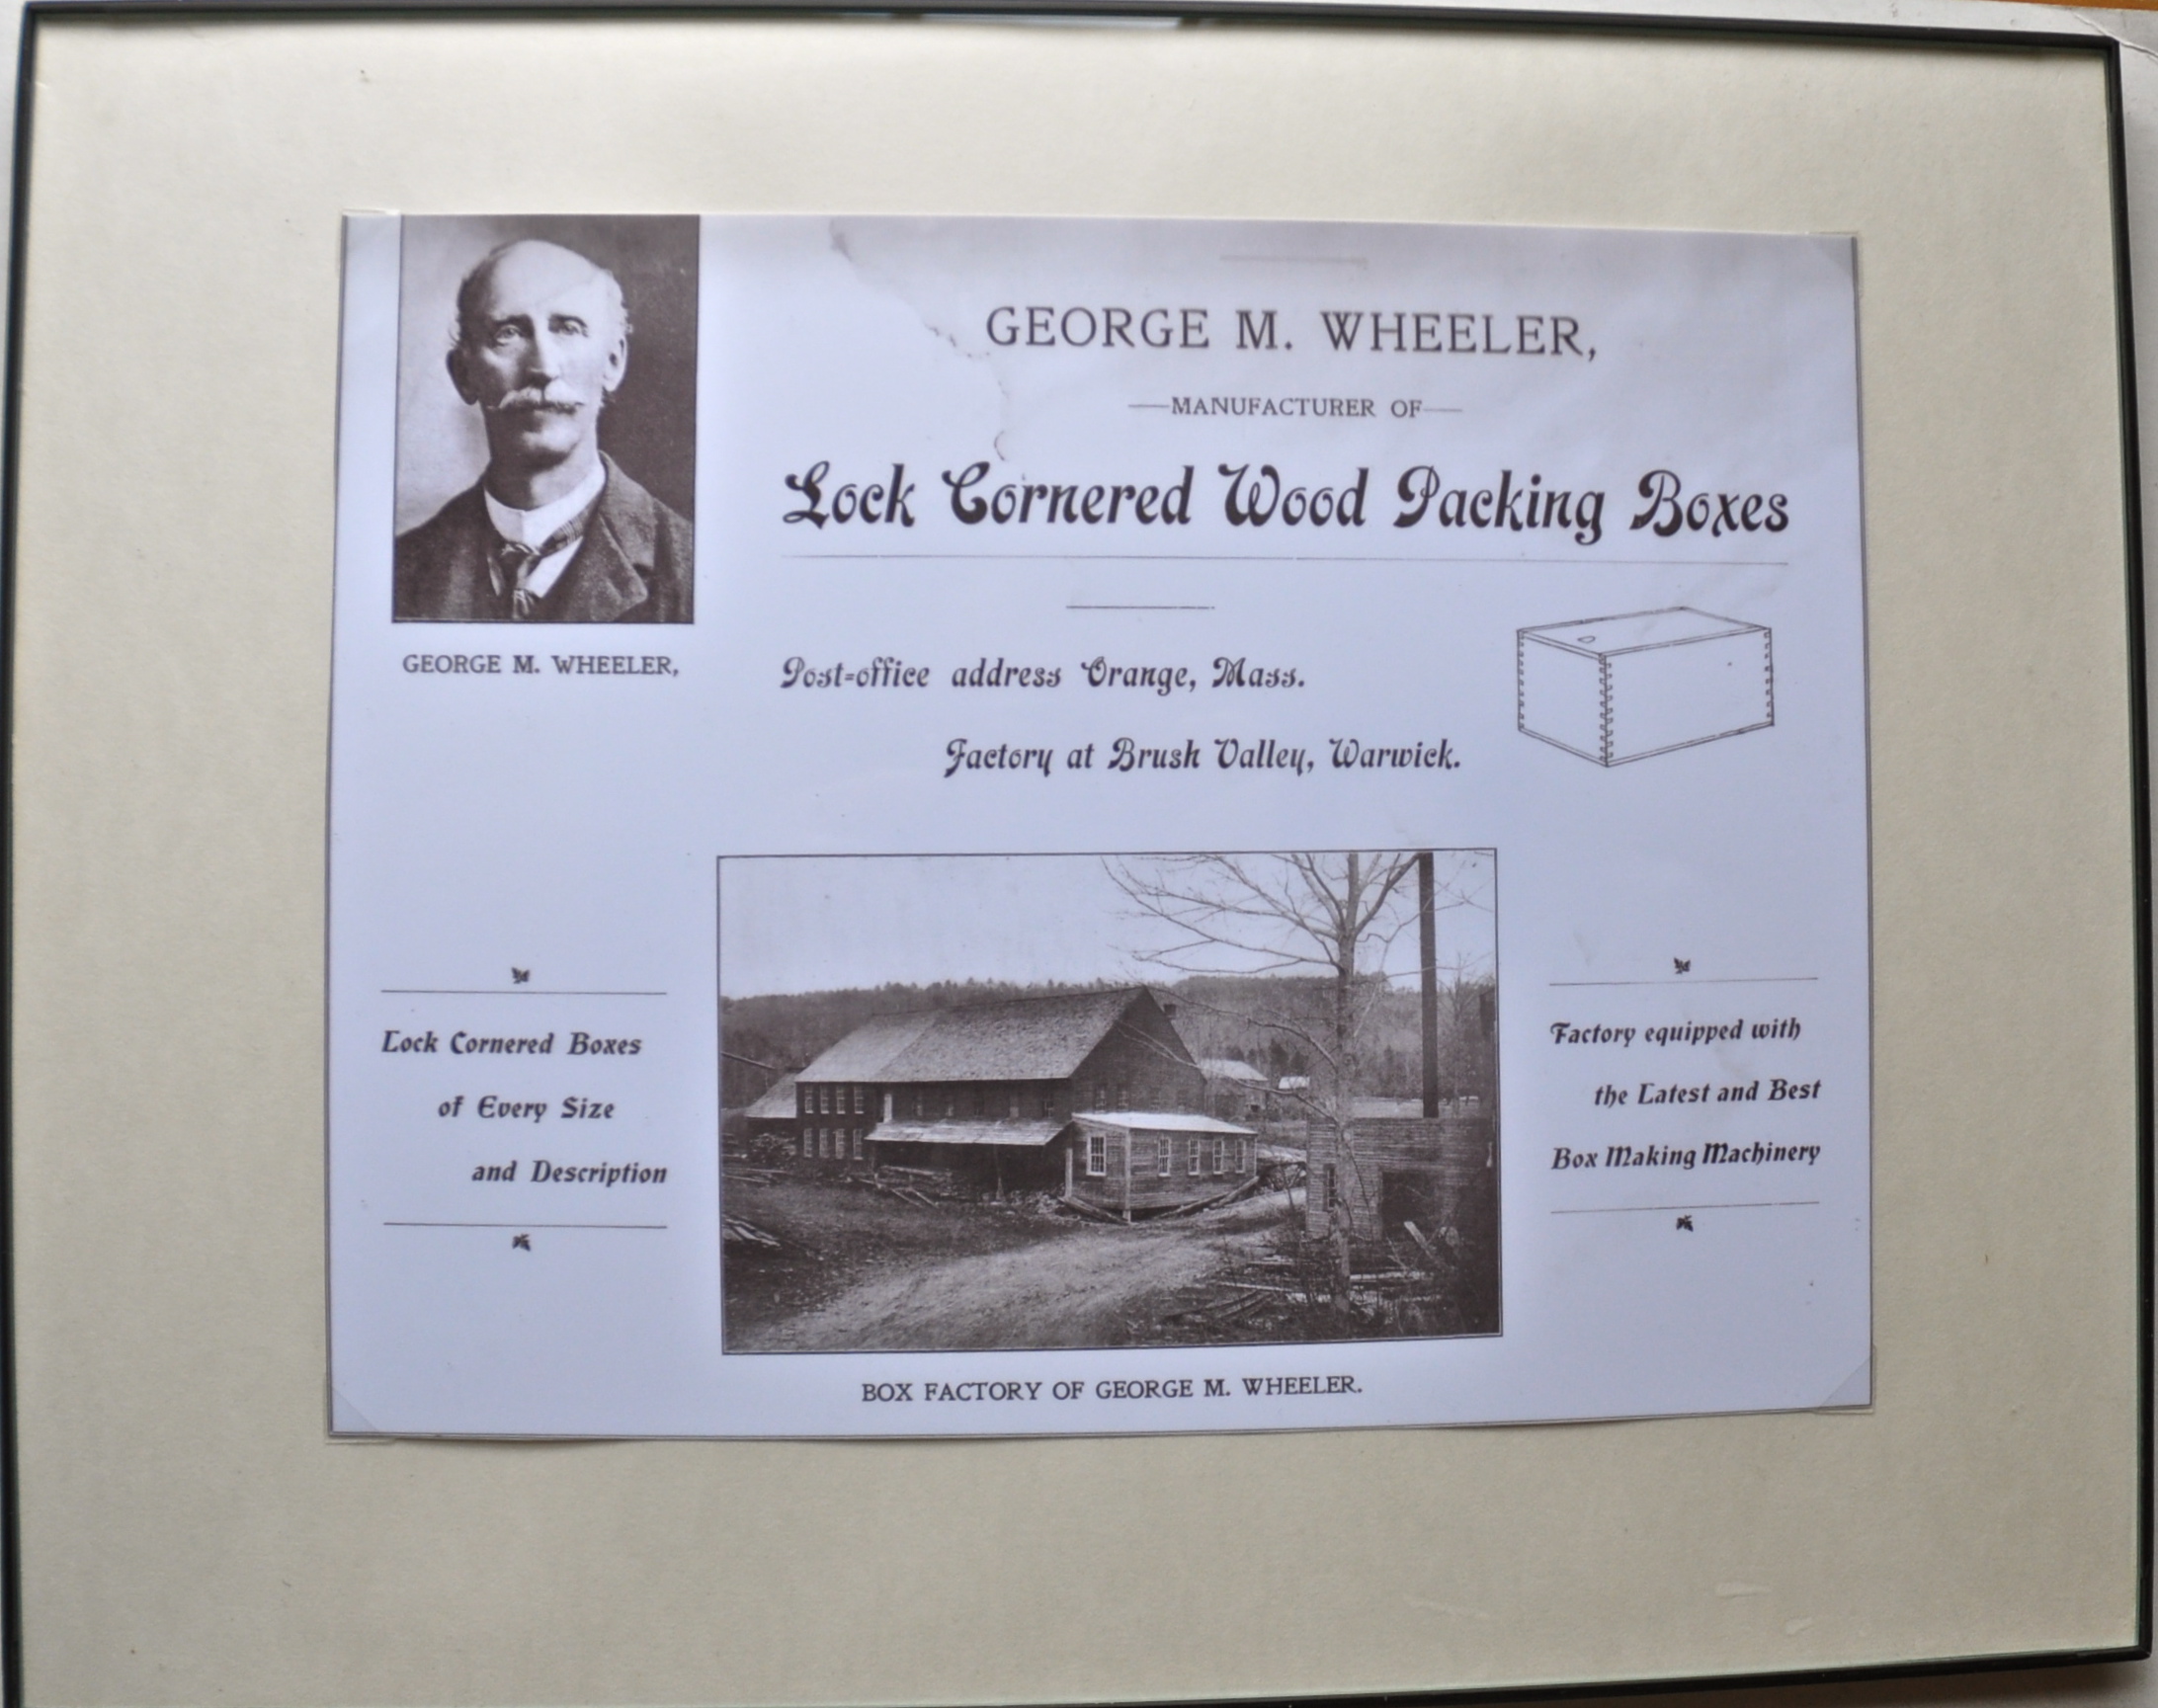 GEORGE M. WHEELER,
—MANUFACTURER OF—
Lock Cornered Wood Packing Boxes
GEORGE M. WHEELER,
Post-office address Orange, Mass.
Factory at Brush Valley, Warwick.
Lock Cornered Boxes
of Every Size
and Description
Factory equipped with
the Latest and Best
Box Making Machinery
BOX FACTORY OF GEORGE M. WHEELER.